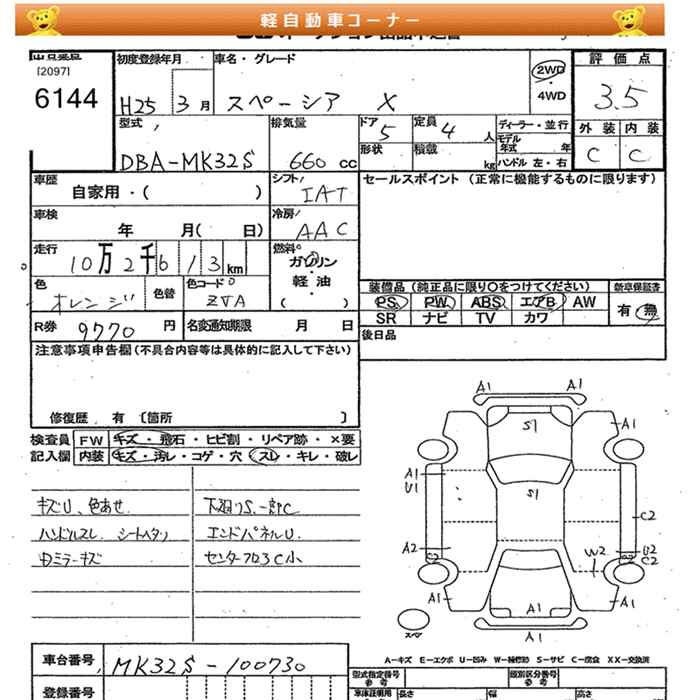 軽自動車コーナー
[2097]
6144
初度登録年月
H25 3月
車名・グレード
スペーシア X
2WD
・
4WD
評価点
3.5
外装 内装
C C
型式
DBA-MK32S
排気量
660 cc
ドア 5
形状
定員 4 人
積載 kg
ディーラー・並行
モデル年式 年
ハンドル 左・右
車歴
自家用・( )
シフト
IAT
セールスポイント (正常に機能するものに限ります)
車検
年 月( 日)
冷房
AAC
走行
10万2千613km
燃料
ガソリン
・
軽油
( )
色
オレンジ
色替
色コードNo
ZVA
装備品(純正品に限り○をつけてください)
新車保証書
PS PW ABS エアB AW
SR ナビ TV カワ
有・無
R券 9770 円
名変通知期限 月 日
後日品
注意事項申告欄(不具合内容等は具体的に記入して下さい)
修復歴 有 〔箇所 〕
検査員記入欄
FW キズ・飛石・ヒビ割・リペア跡・×要
内装 キズ・汚レ・コゲ・穴・スレ・キレ・破レ
キズU、色あせ
ハンドルスレ シートヘタリ
Dミラーキズ
下廻りS、一部C
エンドパネルU
センターフロアC小
A1 A1
S1
A1 A1
A1
U1
S1
C2
A2
C2
W2
U2
C2 C2
A1 A1 A1
A1
スペア
A-キズ E-エクボ U-凹み W-補修跡 S-サビ C-腐食 XX-交換済
車台番号
MK32S-100730
登録番号
型式指定番号
参考
類別区分番号
参考
車体証明用
長さ 幅 高さ